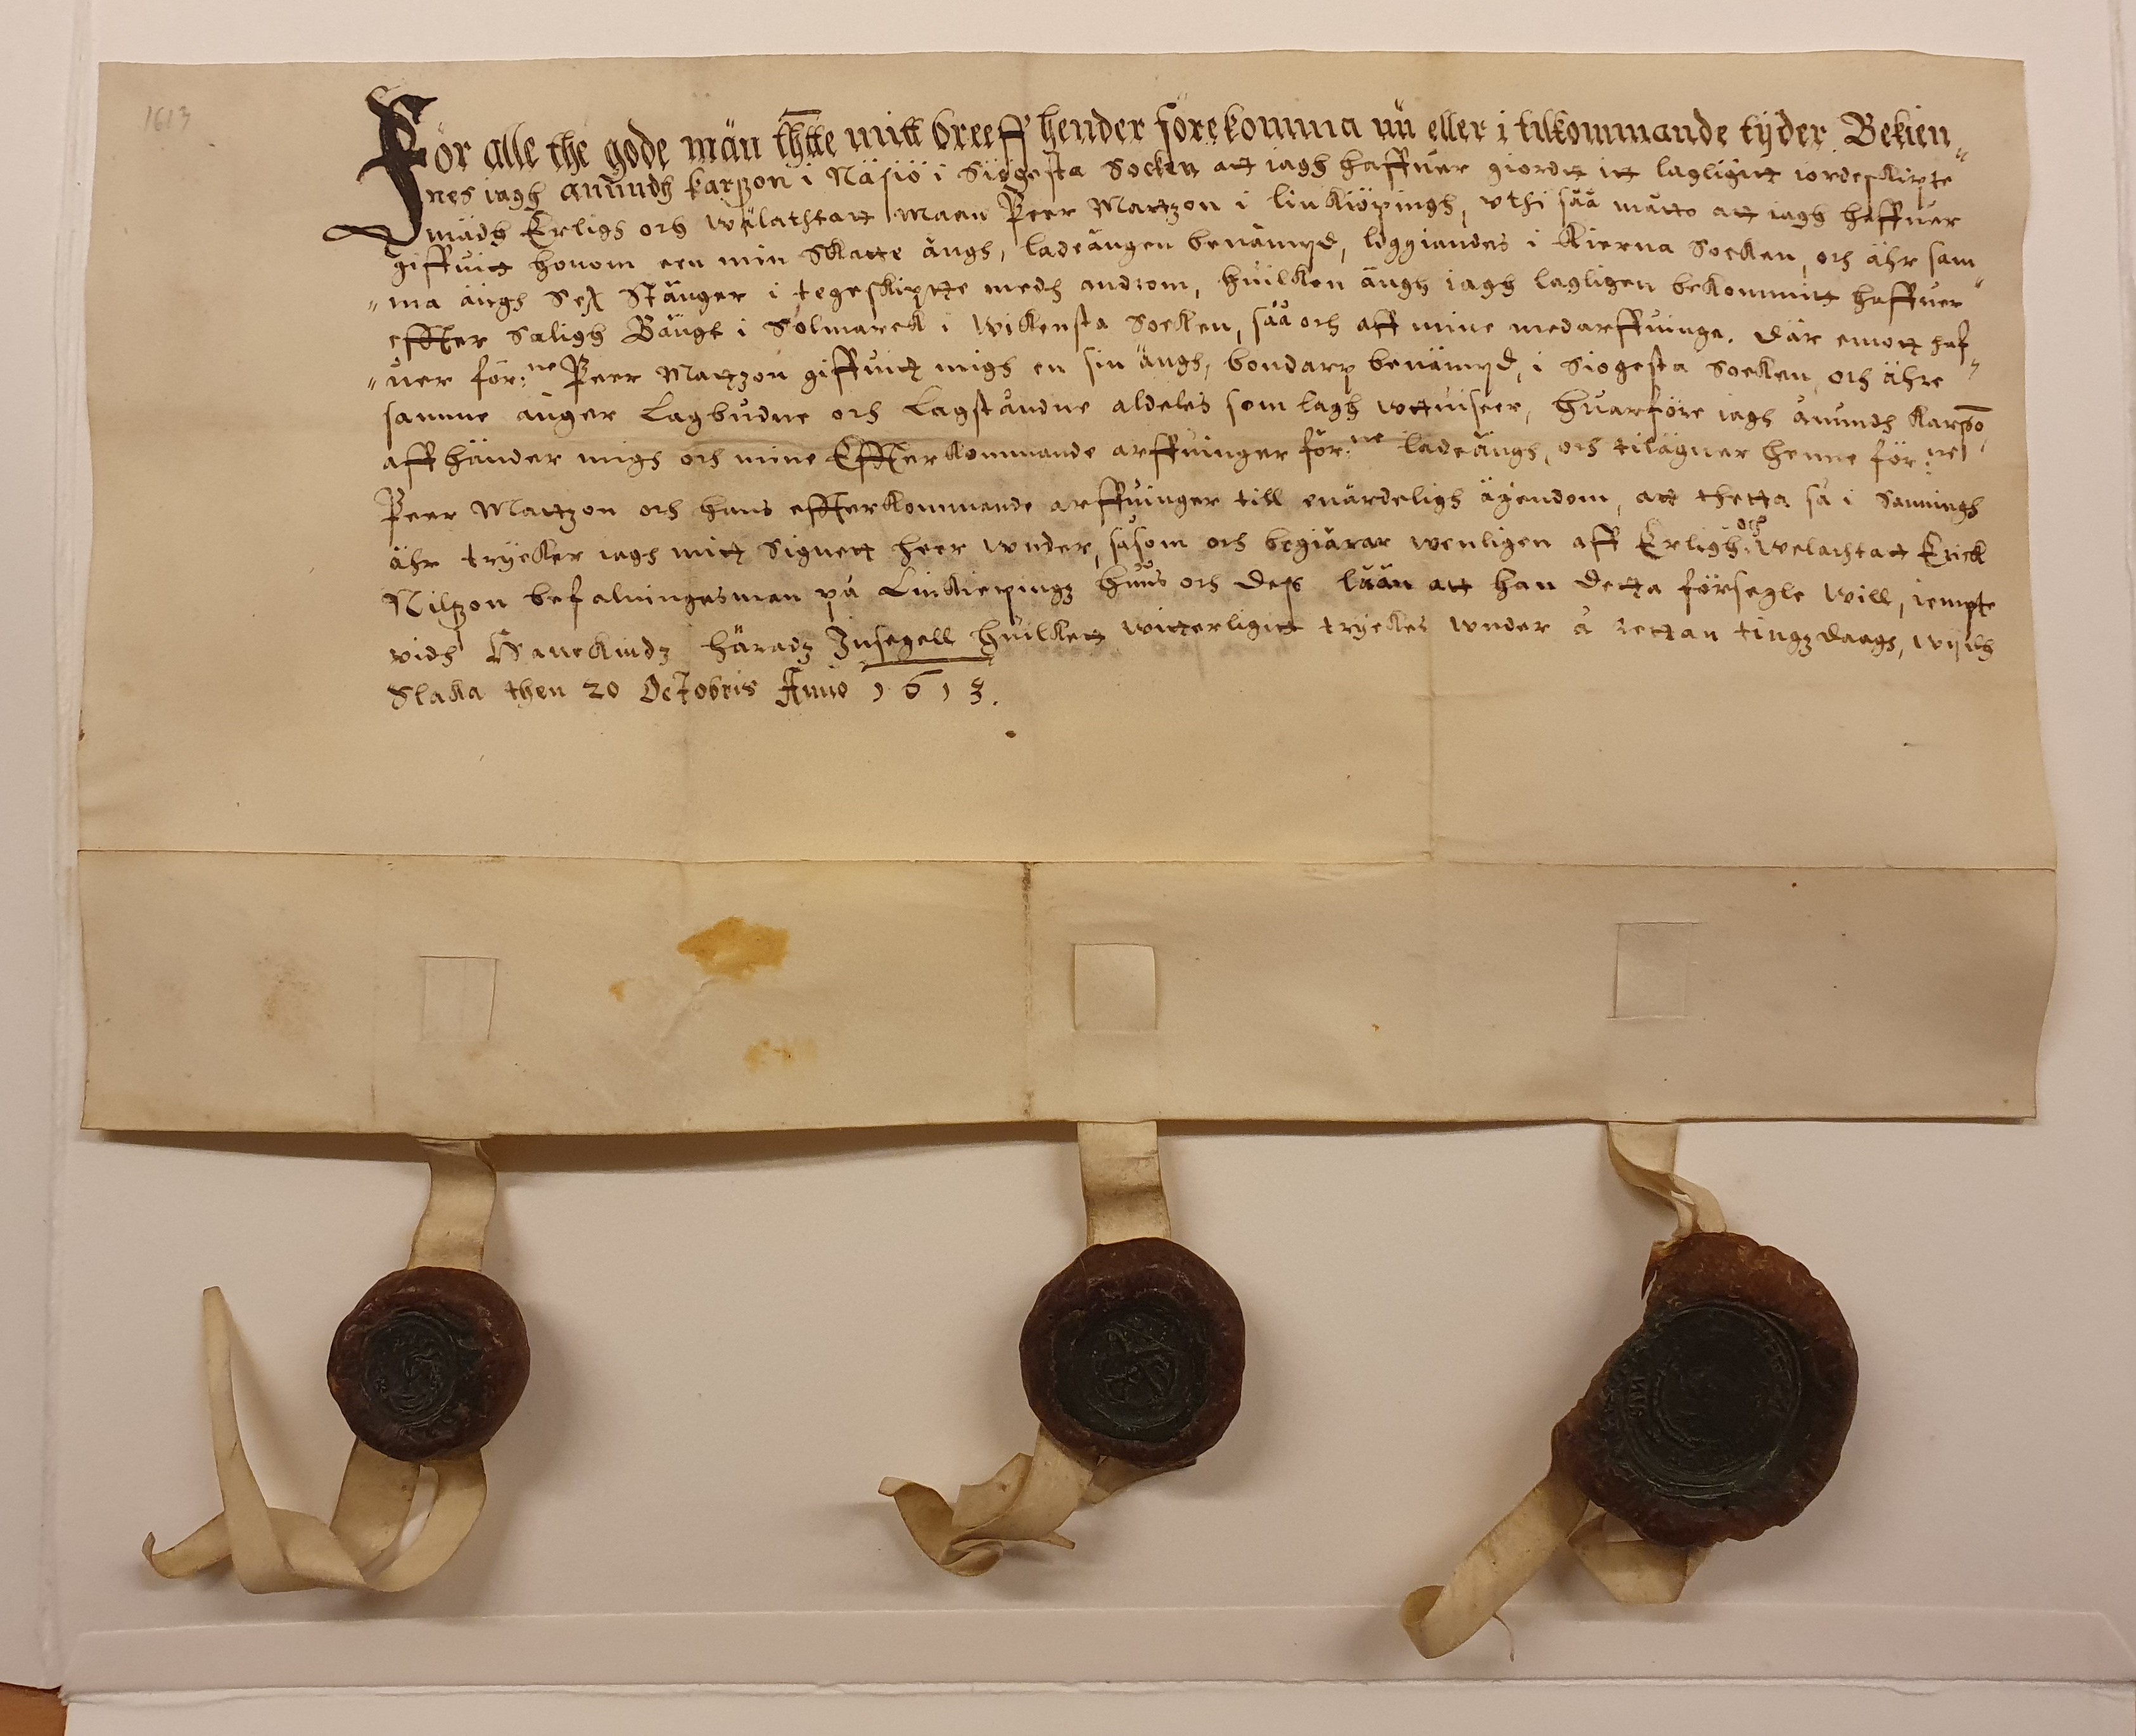 1613
För alle the gode män thette mitt breeff hender förekomma nu eller i tilkommande tijder Bekien„
nes iagh Anundh karszon i Näsiö i Siögesta Socken att iagh haffuer giordtt itt lagligitt iordeskipte
mädh Erligh och wälachtatt Maen Peer Mattzon i linkiöpingh, vthi såå måtto att iagh haffuer
giffuitt honom een min Skatte ängh, ladeängen benämpd, liggiandes i Kierna Socken, och ähr sam„
„ma ängh Sex Stänger i tegeskiptte medh androm, huilken ängh iagh lagligen bekommitt haffuer
effter Saligh Bängt i Solmarck i Wikensta Socken, såå och aff mine medarffuinga. Där emott haf„
„uer för:ne Peer Mattzon giffuitt migh en sin ängh, bondarp benämpd, i Siogesta Socken, och ähre
samme änger Lagbudne och Lagståndne aldeles som lagh wttuiser, huarföre iagh Anundh Karszo̅
affhänder migh och mine Effterkommande arffuinger för:ne ladeängh, och tilägner henne för:ne
Peer Mattzon och hans effterkommande arffuinger till euärdeligh ägendom, att thetta så i Sanningh
ähr trycker iagh mitt Signett heer wnder, såsom och begiärar wenligen aff Erligh och Welachtatt Erick
Nilszon befalningesman på Linkiepingz huus och dess lään att han detta försegle will, iempte
vidh Hanekindz häradz Insegell huilkett witterligitt tryckes wnder å rettan tingzdaagh, wijdh
Slaka then 20 Octobris Anno 1613.